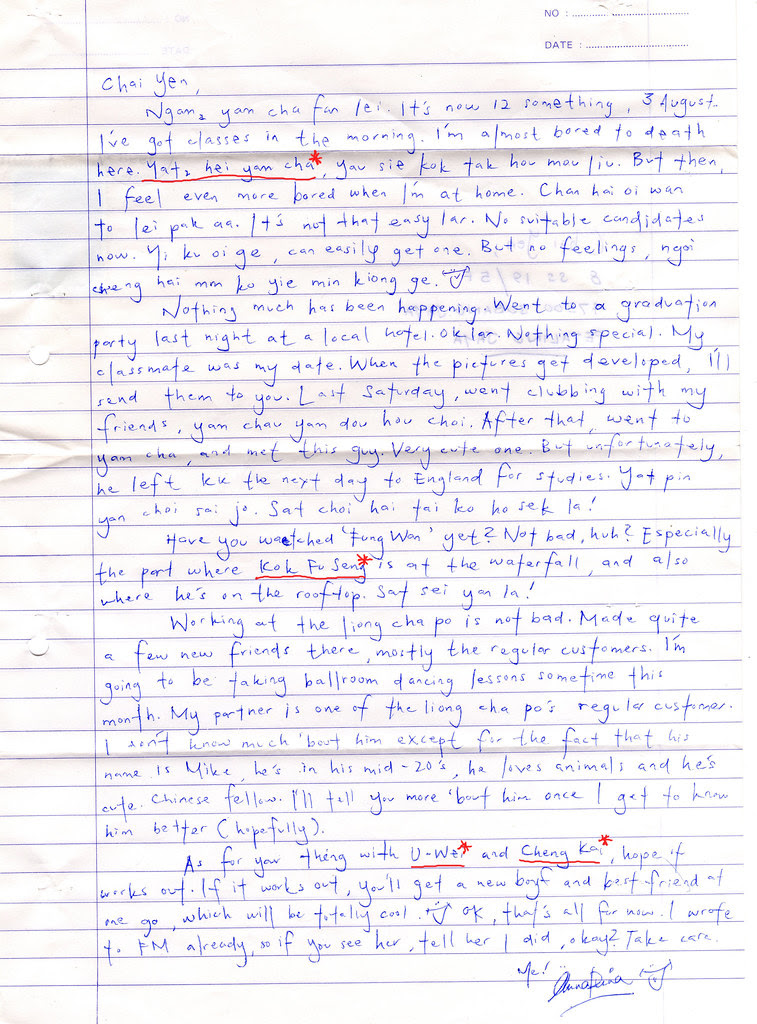 NO : ..............................
DATE : ..............................
Chai Yen,
Ngan, yam cha fan lei. It's now 12 something, 3 August.
I've got classes in the morning. I'm almost bored to death
here. Yat, hei yam cha*, yau sie kok tak hou mou liu. But then,
I feel even more bored when I'm at home. Chan hai oi wan
to lei pak aa. It's not that easy lar. No suitable candidates
now. Yi ku oi ge, can easily get one. But no feelings, ngoi
cheng hai mm ko yie min kiong ge.
Nothing much has been happening. Went to a graduation
party last night at a local hotel. Ok lar. Nothing special. My
classmate was my date. When the pictures get developed, I'll
send them to you. Last Saturday, went clubbing with my
friends, yam chau yam dou hou choi. After that, went to
yam cha, and met this guy. Very cute one. But unfortunately,
he left KK the next day to England for studies. Yat pin
yan choi sai jo. Sat choi hai tai ko ho sek la!
Have you watched 'Fung Wan' yet? Not bad, huh? Especially
the part where Kok Fu Seng* is at the waterfall, and also
where he's on the rooftop. Sat sei yan la!
Working at the liong cha po is not bad. Made quite
a few new friends there, mostly the regular customers. I'm
going to be taking ballroom dancing lessons sometime this
month. My partner is one of the liong cha po's regular customer.
I don't know much 'bout him except for the fact that his
name is Mike, he's in his mid-20's, he loves animals and he's
cute. Chinese fellow. I'll tell you more 'bout him once I get to know
him better (hopefully).
As for your thing with U-Wei* and Cheng Kai*, hope it
works out. If it works out, you'll get a new boyf and best friend at
one go, which will be totally cool. OK, that's all for now. I wrote
to FM already, so if you see her, tell her I did, okay? Take care.
Me!